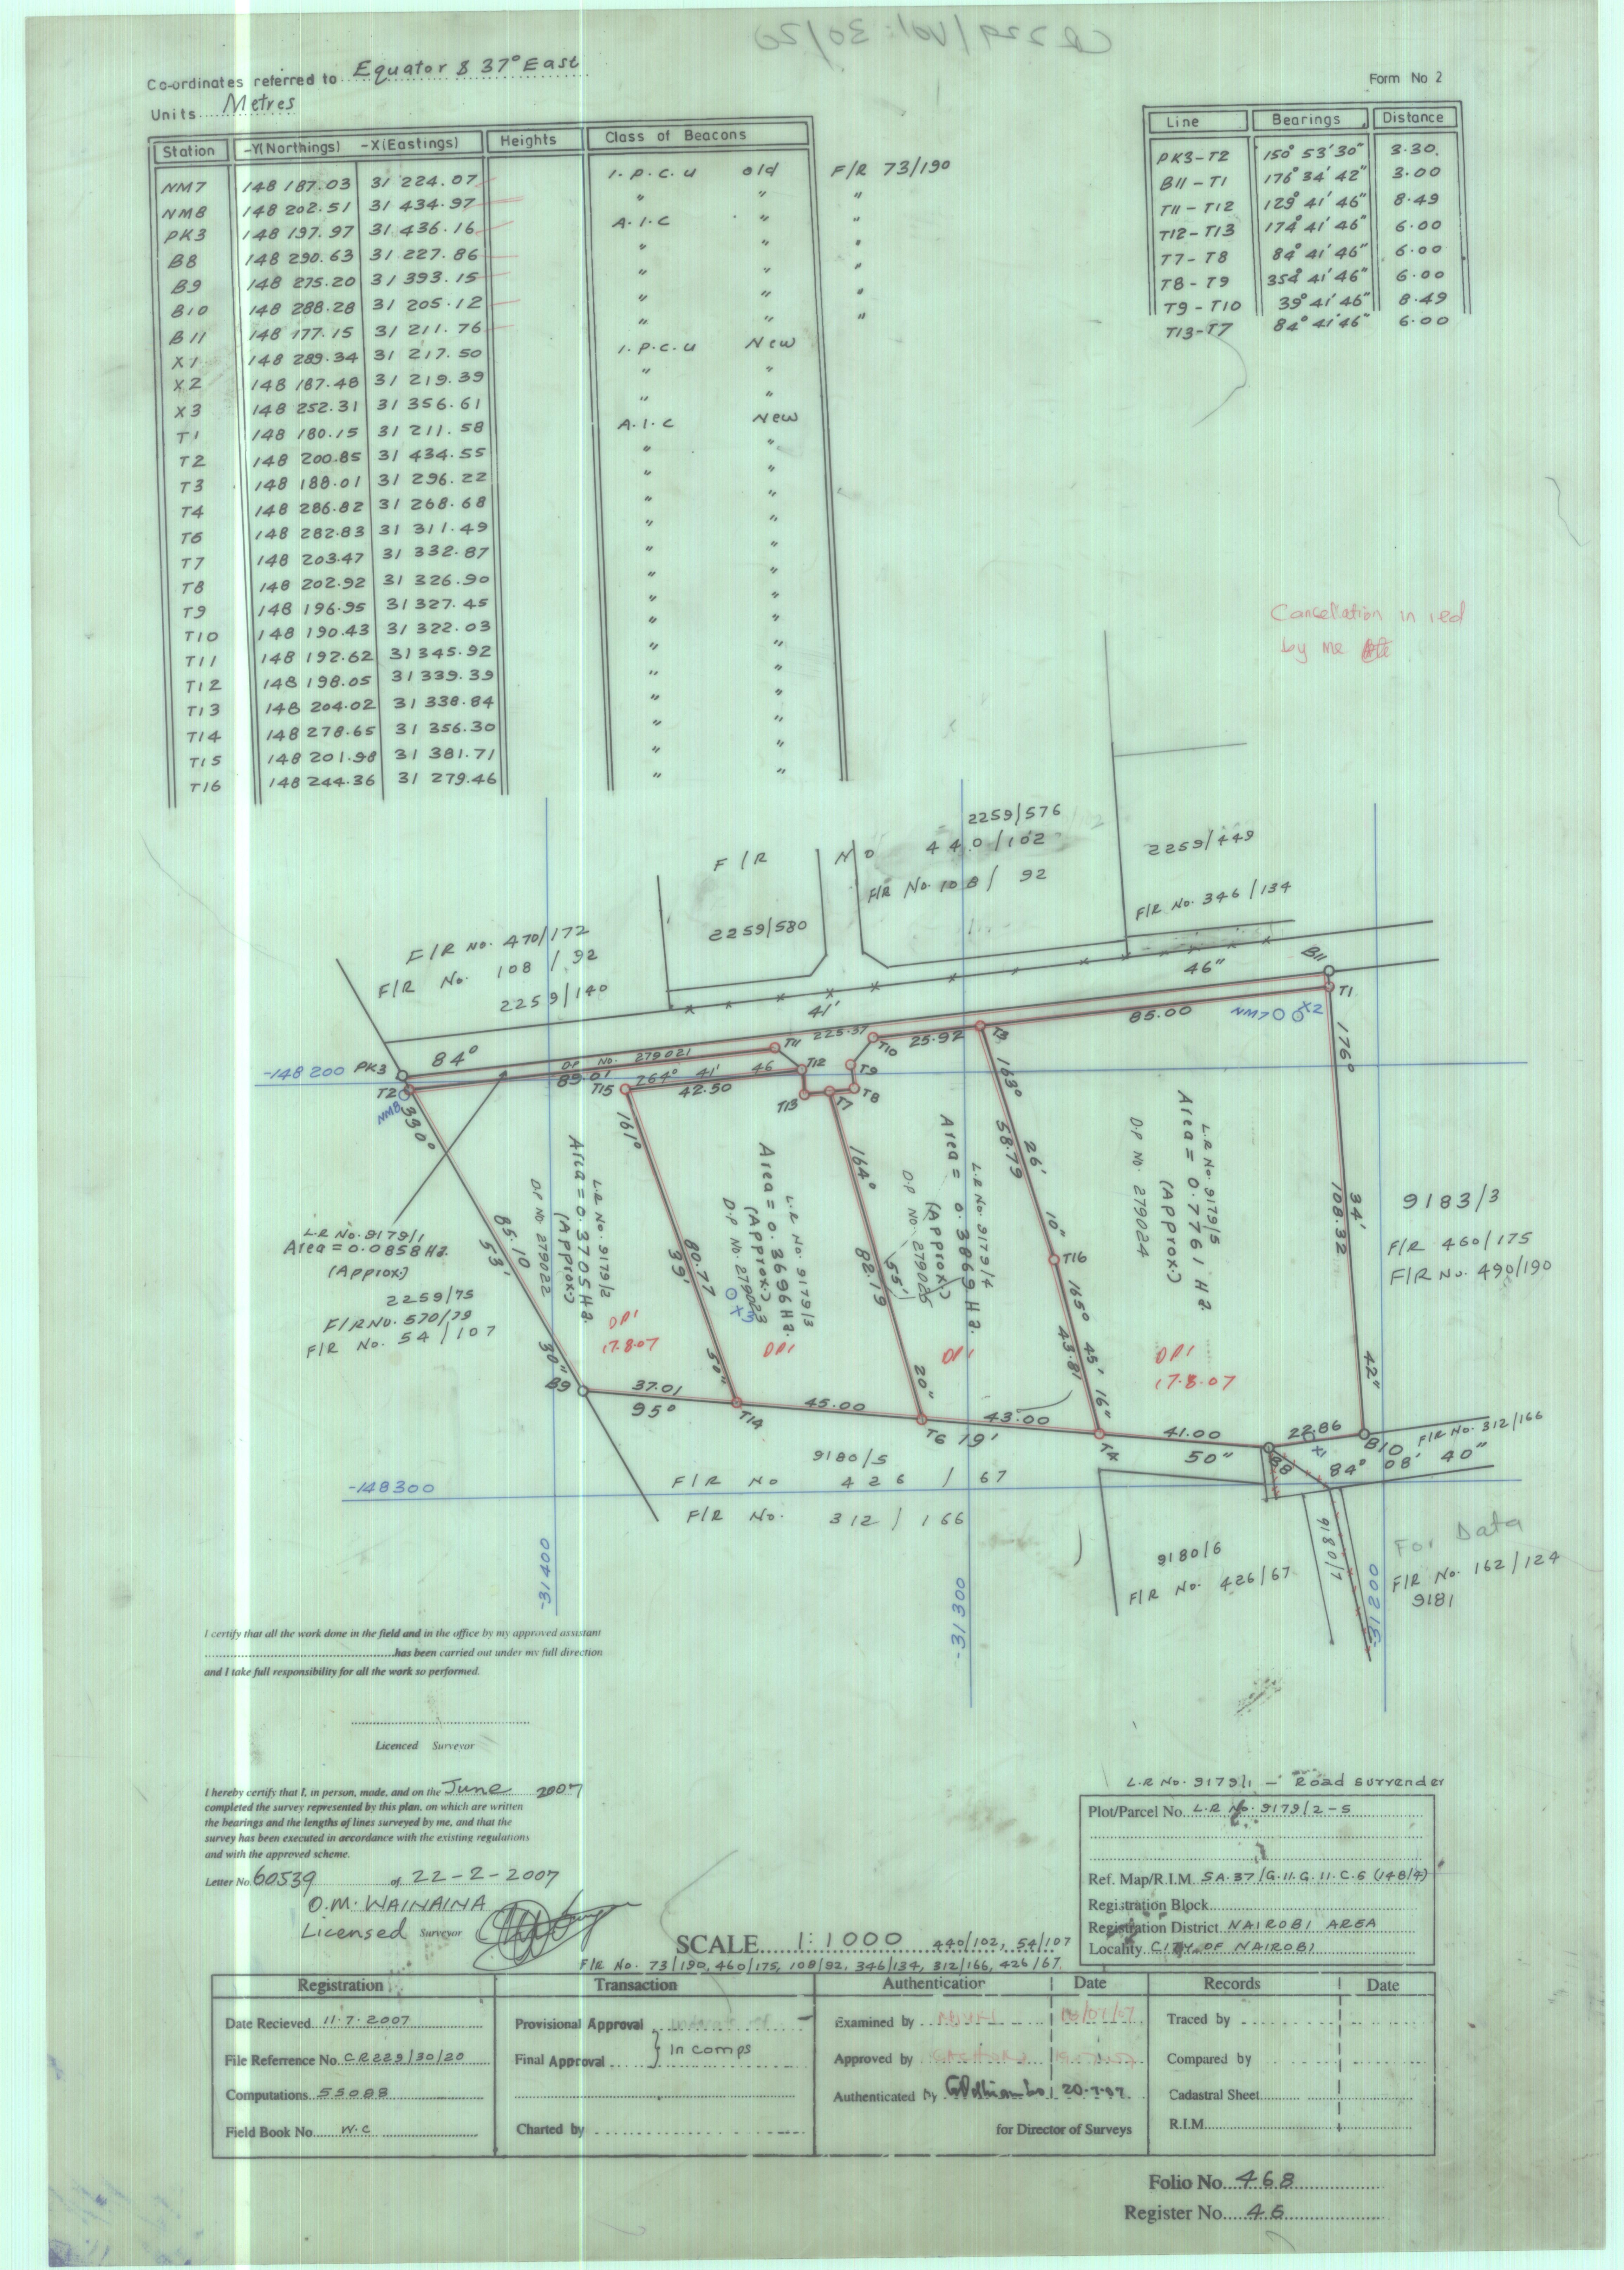 CR 229/Vol: 30/20
Co-ordinates referred to Equator & 37° East
Form No 2
Units Metres
Station -Y(Northings) -X(Eastings) Heights Class of Beacons
NM7 148 187.03 31 224.07 I.P.C.U old F/R 73/190
NM8 148 202.51 31 434.97 " " "
PK3 148 197.97 31 436.16 A.I.C " "
B8 148 290.63 31 227.86 " " "
B9 148 275.20 31 393.15 " " "
B10 148 288.28 31 205.12 " " "
B11 148 177.15 31 211.76 " " "
X1 148 289.34 31 217.50 I.P.C.U New
X2 148 187.48 31 219.39 " "
X3 148 252.31 31 356.61 " "
T1 148 180.15 31 211.58 A.I.C New
T2 148 200.85 31 434.55 " "
T3 148 188.01 31 296.22 " "
T4 148 286.82 31 268.68 " "
T6 148 282.83 31 311.49 " "
T7 148 203.47 31 332.87 " "
T8 148 202.92 31 326.90 " "
T9 148 196.95 31 327.45 " "
T10 148 190.43 31 322.03 " "
T11 148 192.62 31 345.92 " "
T12 148 198.05 31 339.39 " "
T13 148 204.02 31 338.84 " "
T14 148 278.65 31 356.30 " "
T15 148 201.98 31 381.71 " "
T16 148 244.36 31 279.46 " "
Line Bearings Distance
PK3-T2 150° 53' 30" 3.30.
B11-T1 176° 34' 42" 3.00
T11-T12 129° 41' 46" 8.49
T12-T13 174° 41' 46" 6.00
T7-T8 84° 41' 46" 6.00
T8-T9 354° 41' 46" 6.00
T9-T10 39° 41' 46" 8.49
T13-T7 84° 41' 46" 6.00
Cancellation in red
by me
2259/576
F/R No 440/102
F/R No. 108/ 92
2259/449
F/R No. 346/134
2259/580
F/R No. 470/172
F/R No. 108 / 92
2259/140
B11
46"
T1
41'
225.37
84°
PK3
-148 200
T2
NM8
DP No. 279021
89.01
T11
T12
T10
25.92
T3
85.00
NM7
X2
T15
264° 41' 46
42.50
T13
T7
T8
T9
330°
85.10
53'
30"
161°
80.77
39'
50"
164°
82.19
55'
20"
163°
58.79
26'
10"
T16
165°
43.81
45'
16"
176°
108.32
34'
42"
L.R No. 9179/1
Area = 0.0858 Ha.
(Approx.)
2259/75
F/R No. 570/79
F/R No. 54/107
L.R No. 9179/2
Area = 0.3705 Ha.
(Approx.)
D.P No. 279022
DP1
17.8.07
L.R No. 9179/3
Area = 0.3696 Ha.
(Approx.)
D.P No. 279023
X3
DP1
L.R No. 9179/4
Area = 0.3869 Ha.
(Approx)
D.P No. 279025
DP1
L.R No. 9179/5
Area = 0.7761 Ha
(Approx)
D.P No. 279024
DP1
17.8.07
9183/3
F/R 460/175
F/R No. 490/190
B9
37.01
95°
T14
45.00
T6
19'
43.00
T4
41.00
50"
B8
22.86
X1
B10
84° 08' 40"
F/R No. 312/166
9180/5
F/R No 426 / 67
F/R No. 312 / 166
-148300
-31 400
-31 300
-31 200
9180/6
F/R No. 426/67
9180/7
For Data
F/R No. 162/124
9181
I certify that all the work done in the field and in the office by my approved assistant
has been carried out under my full direction
and I take full responsibility for all the work so performed.
Licenced Surveyor
I hereby certify that I, in person, made, and on the June 2007
completed the survey represented by this plan, on which are written
the bearings and the lengths of lines surveyed by me, and that the
survey has been executed in accordance with the existing regulations
and with the approved scheme.
Letter No. 60539 of 22-2-2007
O.M. WAINAINA
Licensed Surveyor
SCALE 1:1000 440/102, 54/107
F/R No. 73/190, 460/175, 108/92, 346/134, 312/166, 426/67
L.R No. 9179/1 - Road surrender
Plot/Parcel No. L.R No. 9179/2-5
Ref. Map/R.I.M. SA.37/G.11.G.11.C.6 (148/4)
Registration Block
Registration District NAIROBI AREA
Locality CITY OF NAIROBI
Registration Transaction Authentication Date Records Date
Date Recieved 11.7.2007
File Referrence No CR229/30/20
Computations 55088
Field Book No. W.C
Provisional Approval
Final Approval } In comps
Charted by
Examined by
Approved by
Authenticated by 20.7.07
for Director of Surveys
Traced by
Compared by
Cadastral Sheet
R.I.M.
Folio No. 468
Register No. 46